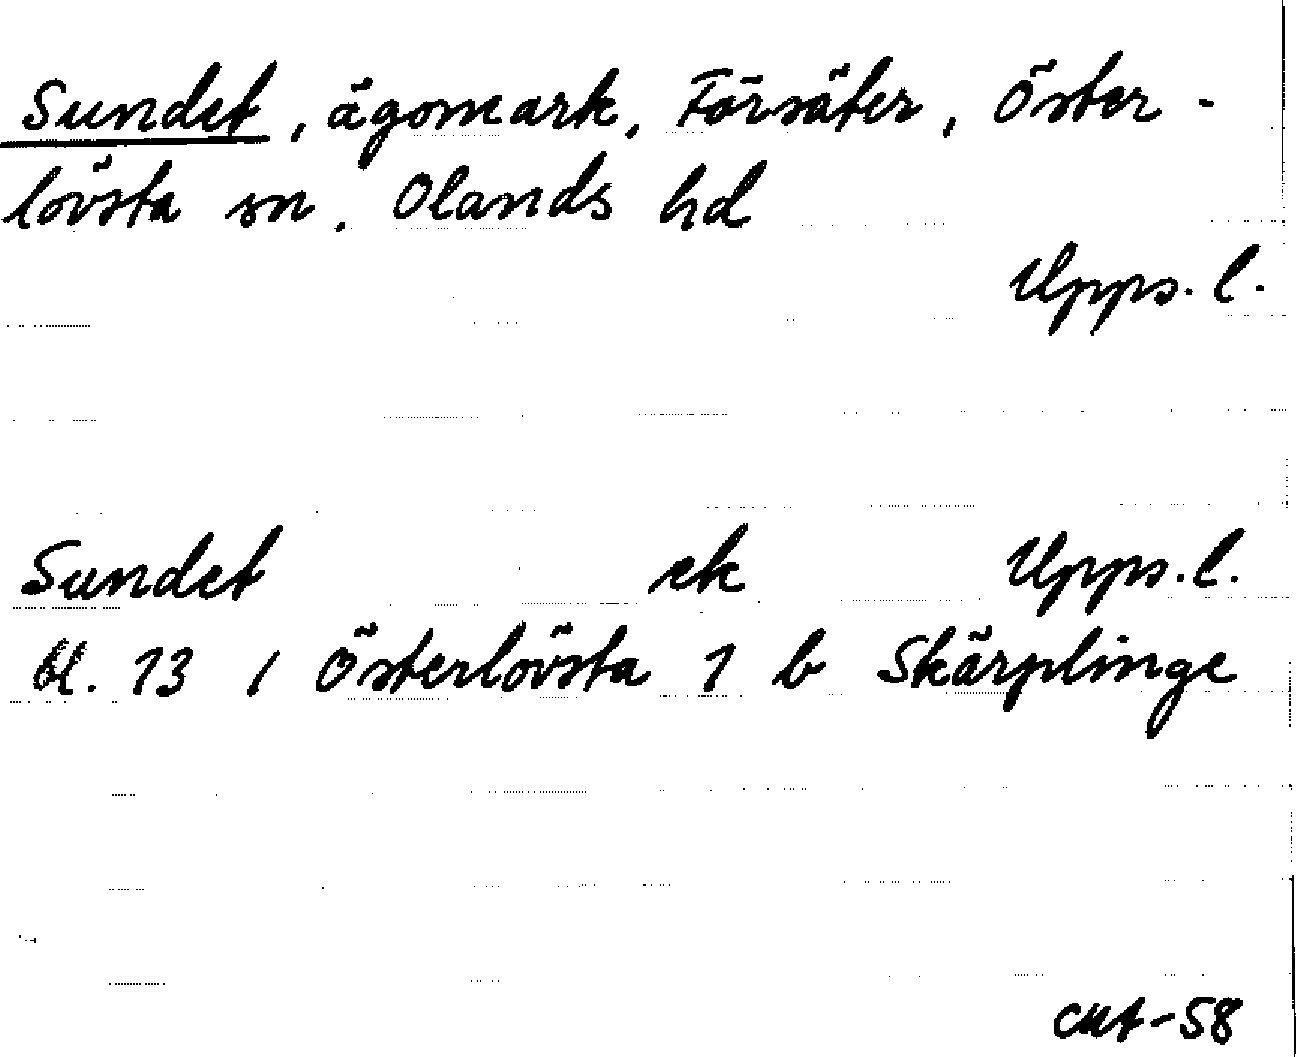 Sundet, ägomark, Försäter, Öster-
lövsta sn. Olands hd
Upps. l.
Sundet ek Upps. l.
bl. 13 / Österlövsta 1 b Skärplinge